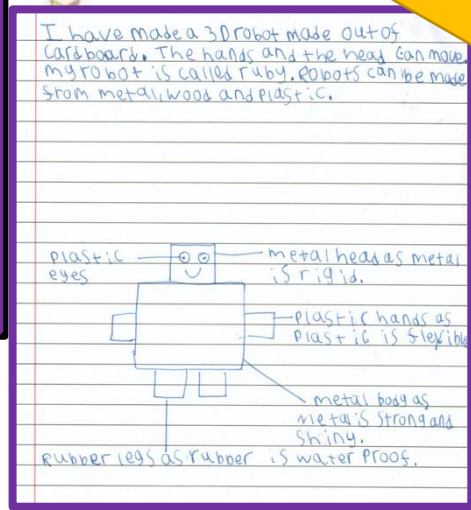 I have made a 3D robot made out of
cardboard. The hands and the head can move.
my robot is called ruby. Robots can be made
from metal, wood and plastic.
plastic
eyes
metal head as metal
is rigid.
plastic hands as
plastic is flexible
metal body as
metal is strong and
shiny.
Rubber legs as rubber is water proof.